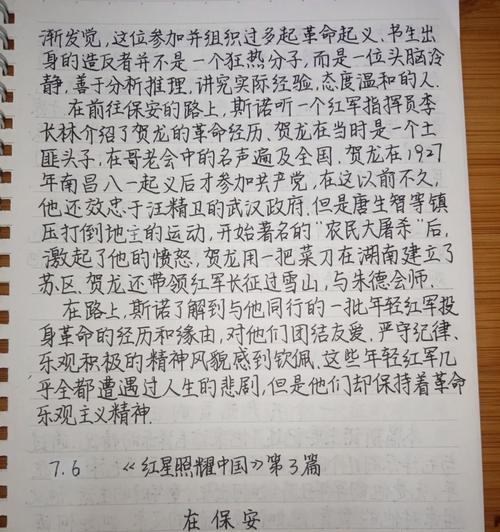 渐发觉,这位参加并组织过多起革命起义、书生出
身的造反者并不是一个狂热分子,而是一位头脑冷
静,善于分析推理,讲究实际经验,态度温和的人.
在前往保安的路上,斯诺听一个红军指挥员李
长林介绍了贺龙的革命经历.贺龙在当时是一个土
匪头子,在哥老会中的名声遍及全国.贺龙在1927
年南昌八一起义后才参加共产党,在这以前不久,
他还效忠于汪精卫的武汉政府.但是唐生智等镇
压打倒地主的运动,开始著名的“农民大屠杀”后,
激起了他的愤怒,贺龙用一把菜刀在湖南建立了
苏区.贺龙还带领红军长征过雪山,与朱德会师.
在路上,斯诺了解到与他同行的一批年轻红军投
身革命的经历和缘由,对他们团结友爱、严守纪律、
乐观积极的精神风貌感到钦佩.这些年轻红军几
乎全都遭遇过人生的悲剧,但是他们却保持着革命
乐观主义精神.
7.6 《红星照耀中国》第3篇
在保安